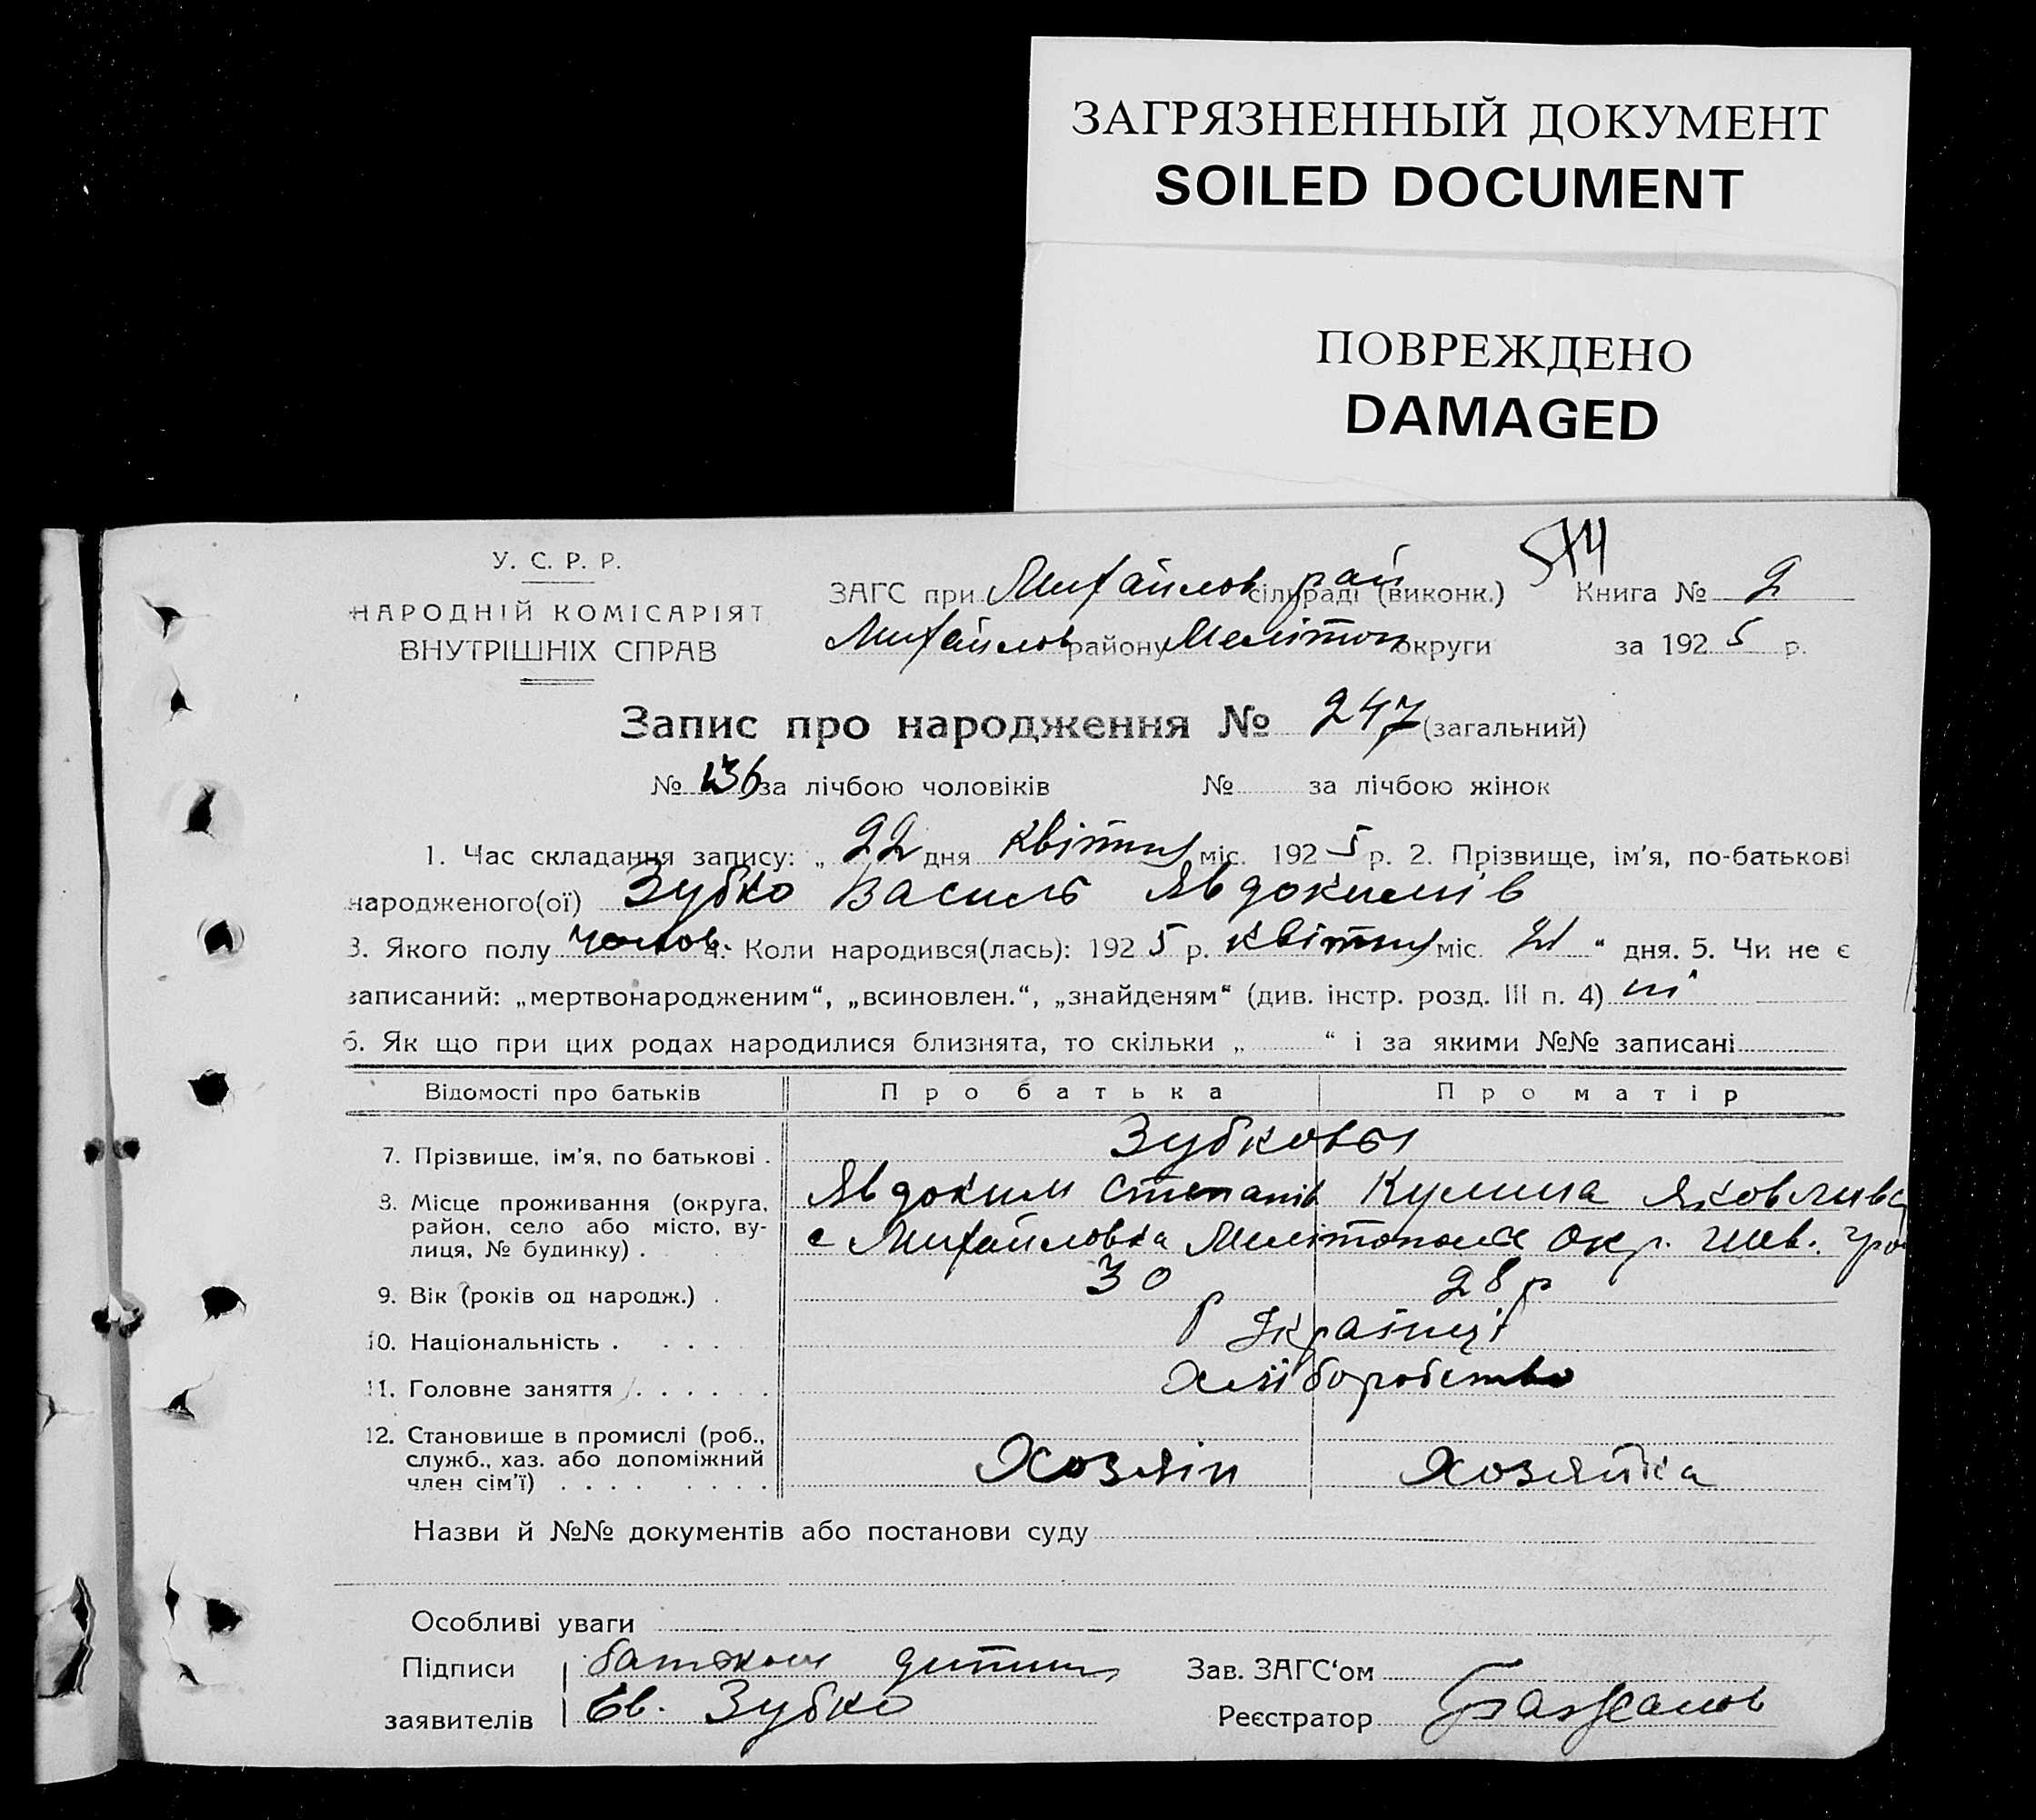 ЗАГРЯЗНЕННЫЙ ДОКУМЕНТ
SOILED DOCUMENT
ПОВРЕЖДЕНО
DAMAGED
У. С. Р. Р.
НАРОДНІЙ КОМІСАРІЯТ
ВНУТРІШНІХ СПРАВ
ЗАГС при Михайлов рай сільраді (виконк.) Книга № 2
Михайлов району Мелітоп округи за 1925 р.
Запис про народження № 247 (загальний)
№ 136 за лічбою чоловіків № за лічбою жінок
1. Час складання запису: „ 22 дня квітня міс. 1925 р. 2. Прізвище, ім’я, по-батькові
народженого(ої) Зубко Василь Явдокимів
3. Якого полу чолов. 4. Коли народився(лась): 1925 р. квітня міс. 21 “ дня. 5. Чи не є
записаний: „мертвонародженим“, „всиновлен.“, „знайденям“ (див. інстр. розд. III п. 4) ні
6. Як що при цих родах народилися близнята, то скільки „ “ і за якими №№ записані
Відомості про батьків Про батька Про матір
7. Прізвище, ім’я, по батькові . Зубковы
Явдоким Степанів Кулина Яковлива
8. Місце проживання (округа, район, село або місто, ву-
лиця, № будинку) . с Михайловка Мелітопольс Окр.
9. Вік (років од народж.) . 30 28 р
10. Національність . . . . Українці
11. Головне заняття . . . . . . Хліборобство
12. Становище в промислі (роб.,
служб., хаз. або допоміжний
член сім’ї) . . . . . . . . Хозяїн Хозяйка
Назви й №№ документів або постанови суду
Особливі уваги
Підписи батьком дитини Зав. ЗАГС‘ом
заявителів Ев. Зубко Реєстратор